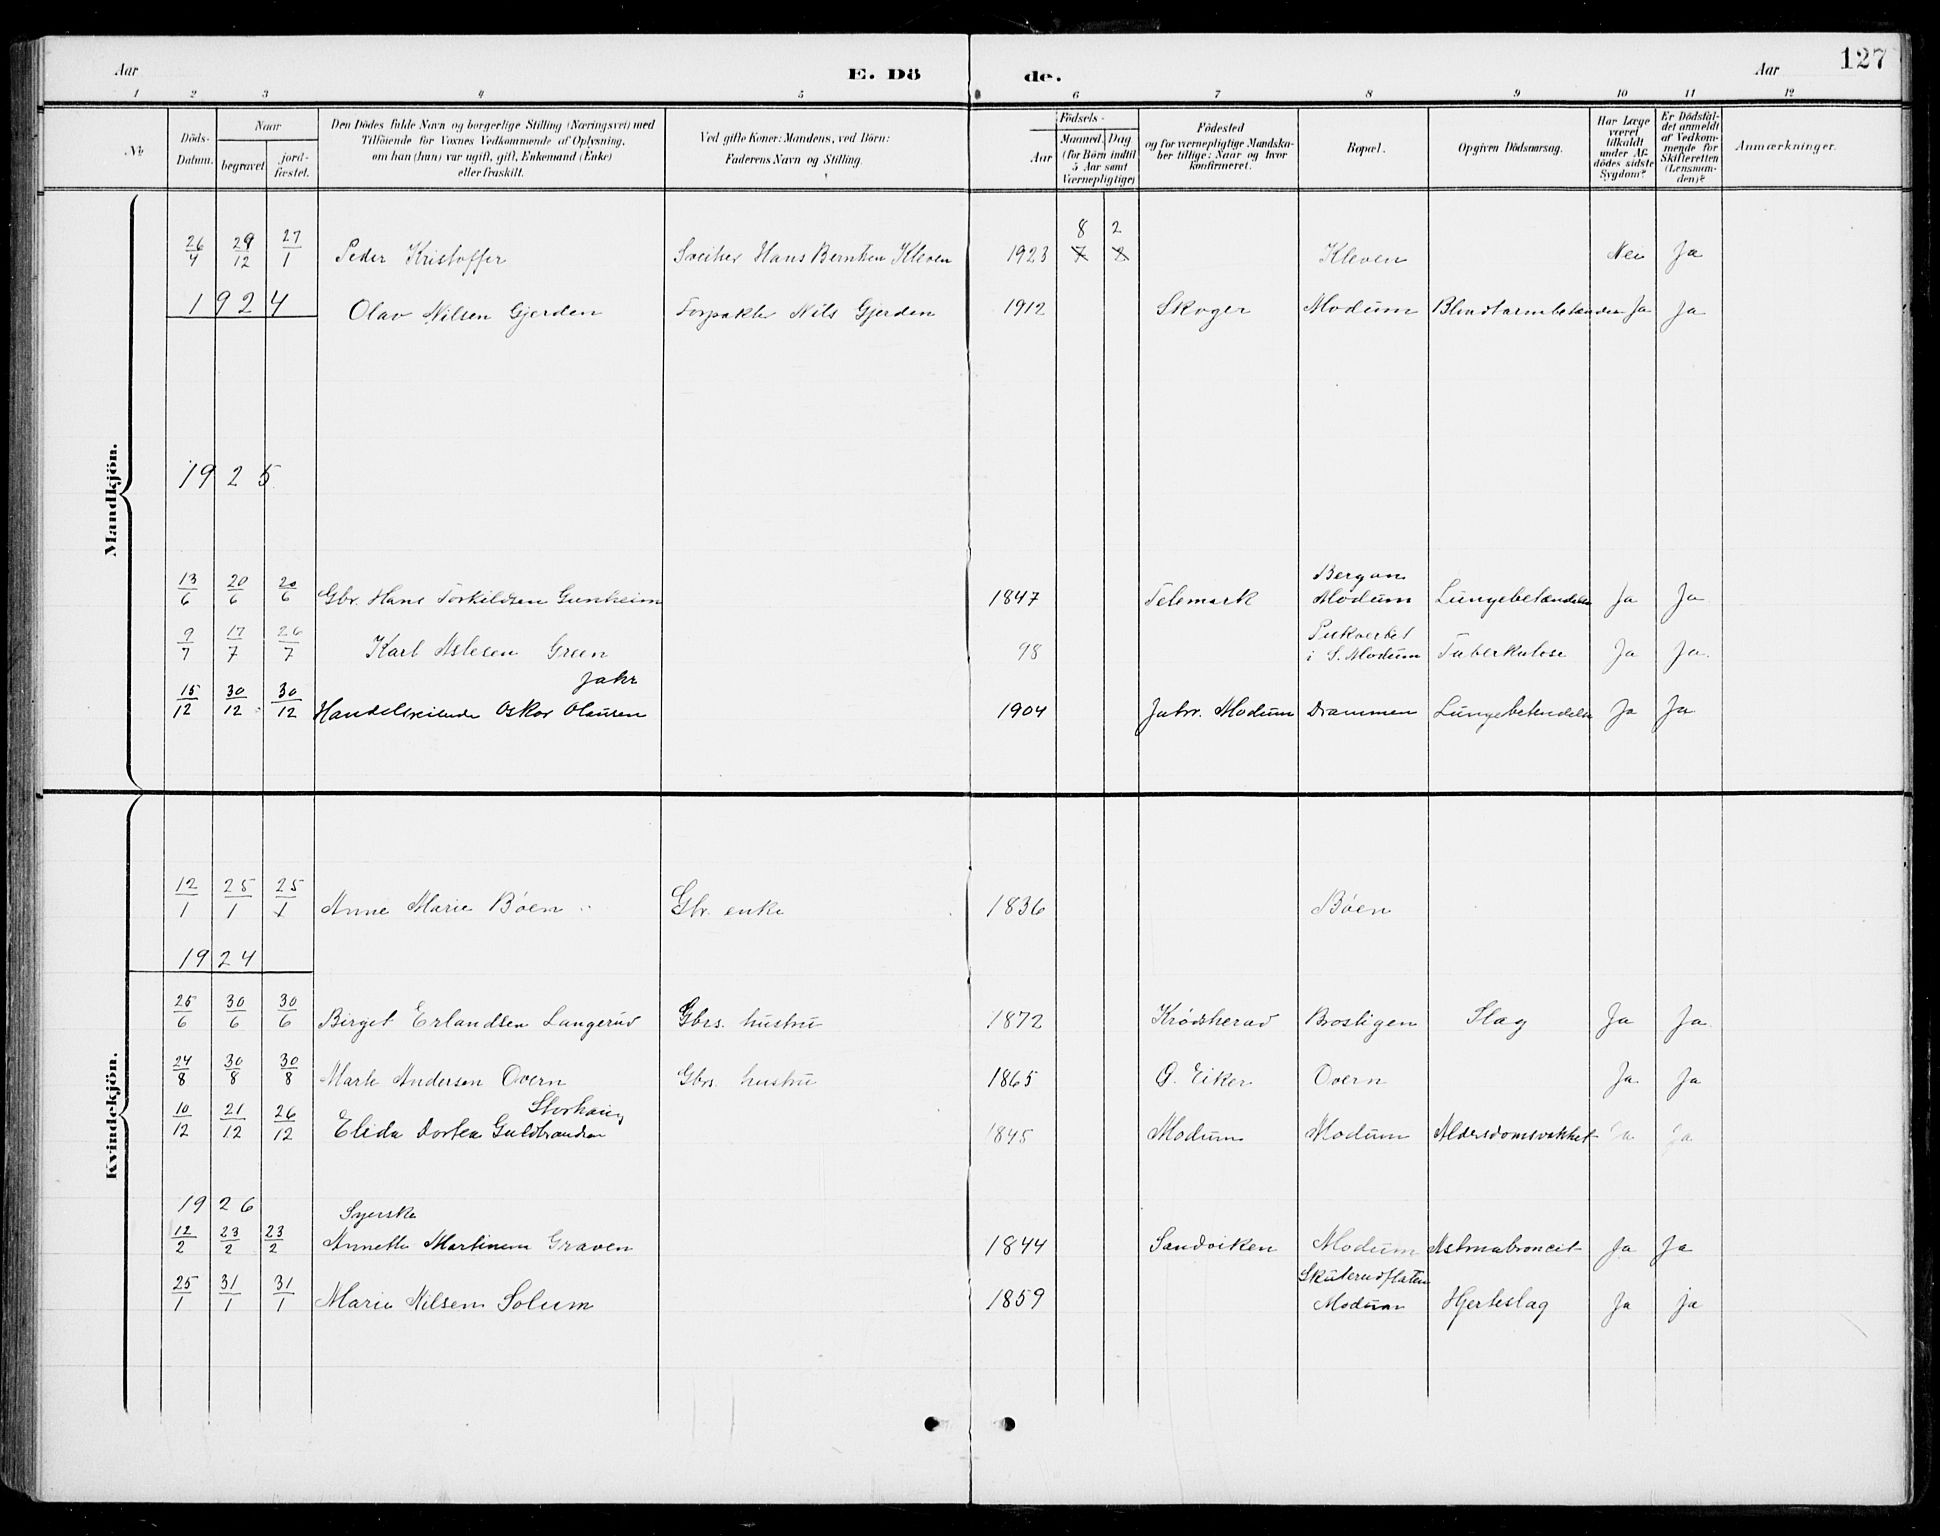 Aar E. Dö de. Aar 127
1 2 3 4 5 6 7 8 9 10 11 12
No
Döds-Datum.
Naar
begravet
jord-fæstet.
Den Dödes fulde Navn og borgerlige Stilling (Næringsvei) med
Tilföiende for Voxnes Vedkommende af Oplysning,
om han (hun) var ugift, gift, Enkemand (Enke)
eller fraskilt.
Ved gifte Koner: Mandens, ved Börn:
Faderens Navn og Stilling.
Födsels-
Aar
Maaned. Dag
(for Börn indtil
5 Aar samt
Værnepligtige)
Födested
og for værnepligtige Mandska-
ber tillige: Naar og hvor
konfirmeret.
Bopæl.
Opgiven Dödsaarsag.
Har Læge
været
tilkaldt
under Af-
dödes sidste
Sygdom?
Er Dödsfal-
det anmeldt
af Vedkom-
mende for
Skifteretten
(Lensman-
den)?
Anmærkninger.
Mandkjön.
8 2
26/4 29/12 27/1 Peder Kristoffer Sveitser Hans Berntsen Kleven 1923 7 2 Kleven Nei Ja
1924 Olav Nilsen Gjerden Forpakter Nils Gjerden 1912 Skoger Modum Blindtarmbetændelse Ja Ja
1925
Bergan
13/6 20/6 20/6 Gbr. Hans Torkildsen Gunheim 1847 Telemark Modum Lungebetændelse Ja Ja
9/7 17/7 26/7 Karl Aslesen Green 98 i S. Modum Tuberkulose Ja Ja.
Jahr
15/12 30/12 30/12 Handelsreisende Oskar Olausen 1904 Jahr. Modum Drammen Lungebetendelse Ja Ja
Kvindekjön.
12/1 25/1 25/1 Anne Marie Bøen Gbr. enke 1836 Bøen
1924
25/6 30/6 30/6 Birget Erlandsen Langerud Gbrs. hustru 1872 Krødsherad Brostigen Slag Ja Ja
24/8 30/8 30/8 Marte Andersen Overn Gbrs. hustru 1865 Ø. Eiker Overn Ja Ja
Storhaug
10/12 21/12 26/12 Elida Dortea Guldbrandsen 1845 Modum Modum Aldersdomsvakhet Ja Ja
1926 Syerske
12/2 23/2 23/2 Annette Martinsen Graven 1844 Sandviken Modum Astmabroncit Ja Ja
Skuterudflaten
25/1 31/1 31/1 Marie Nilsen Solum 1859 Modum Hjerteslag Ja ja